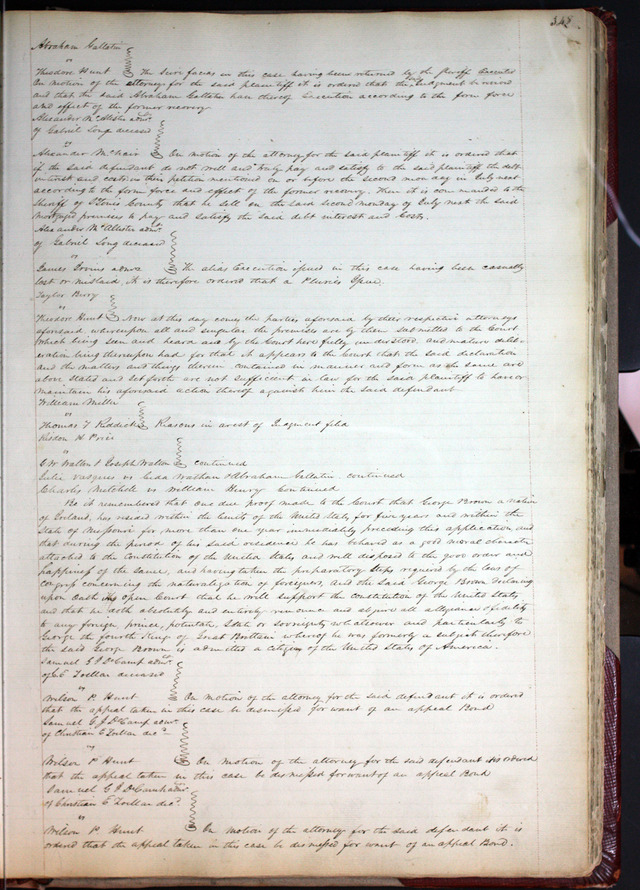 342
Abraham Gallatin
vs
Theodore Hunt The Scire facias in this case having been returned by the Sheriff Executed
On motion of the attorney for the said plaintiff it is ordered that the Judgment be revived
and that the said Abraham Gallatin have thereof Execution according to the form force
and effect of the former recovery
Alexander McAllister admr.
of Gabriel Long deceased
vs
Alexander McNair On motion of the attorney for the said plaintiff it is ordered that
if the said defendant do not well and truly pay and satisfy to the said plaintiff the debt
interest and costs in this petition mentioned on or before the second monday in July next
according to the form force and effect of the former recovery. Then it is commanded to the
Sheriff of St Louis County that he sell on the said second monday of July next the said
mortgaged premises to pay and satisfy the said debt interest and Costs.
Alexander McAllister admr.
of Gabriel Long deceased
vs
James admr The alias Execution issued in this case having been casually
lost or mislaid, it is therefore ordered that a Pluries Issue.
Taylor Berry
vs
Theodore Hunt Now at this day comes the parties aforesaid by their respective attorneys
aforesaid, whereupon all and singular the premises are by them submitted to the Court
Which being seen and heard and by the Court here fully understood and mature delib-
eration being thereupon had for that it appears to the Court that the said declaration
and the matters and things therein contained in manner and form as the same are
above stated and set forth are not sufficient in law for the said plaintiff to have or
maintain his aforesaid action thereof against him the said defendant
William Miller
vs
Thomas F Riddick Reasons in arest of Judgment filed
Risdon H Price
vs
Walter & Joseph Walton continued
vs Abraham Gallatin continued
Charles Mitchell vs William Henry Continued
Be it remembered that one due proof made to the Court that George Brown a native
of Ireland, has resided within the limits of the United States for five years and within the
State of Missouri for more than one year immediately preceeding this application and
that during the period of his said residence he has behaved as a good moral character
attached to the Constitution of the United States and well disposed to the good order and
happiness of the same, and having taken the preparatory steps required by the laws of
congress concerning the naturalization of foreigners, and the said George Brown declaring
upon oath in open Court that he will support the Constitution of the United States
and that he doth absolutely and entirely renounce and abjure all allegiance & fidelity
to any foreign prince, potentate, State or sovereignty whatsoever and particularly to
George the fourth King of Great Brittain whereof he was formerly a subject therefore
the said George Brown is admitted a citizen of the United States of America.
Samuel G J DeCamp admr.
of C Zoellar deceased
vs
Wilson P. Hunt On motion of the attorney for the said defendant it is ordered
that the appeal taken in this case be dismissed for want of an appeal Bond
Samuel G J DeCamp admr.
of Christian C Zoellar decd.
vs
Wilson P Hunt On motion of the attorney for the said defendant it is ordered
that the appeal taken in this case be dismissed for want of an appeal Bond
Samuel G J DeCamp admr
of Christian C Zoellar decd.
vs
Wilson P. Hunt On motion of the attorney for the said defendant it is
ordered that the appeal taken in this case be dismissed for want of an appeal Bond.